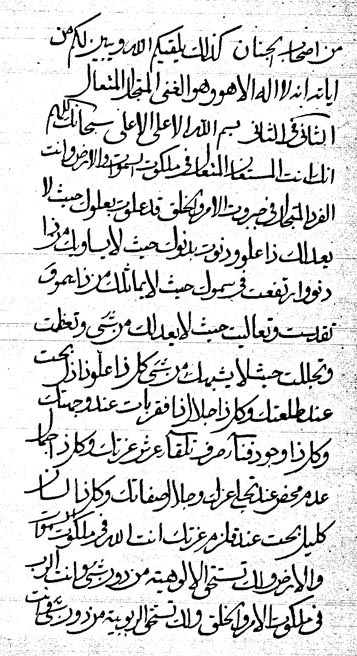 من اصحاب الجنان كذلك يلقيكم الله ويبين لكم من
اياته انه لا اله الا هو وهو الغنى المختار المتعال
الثانى فى الثانى بسم الله الاعلى الاعلى سبحانك اللهم
انك انت المستعان المتعال فى ملكوت السموات والارض وانت
الفرد المختار فى جبروت الامر والخلق قد علوت بعلوك حيث لا
يعدلك ذا علو ودنوت بدنوك حيث لا يساويك من ذا
دنو وارتفعت فى سموك حيث لا يماثلك من ذا سمو
تقدست وتعاليت حيث لا يعدلك من شىء وتعظمت
وتجللت حيث لا يشبهك من شىء كل ذا علو نازل بحت
عند طلعتك وكل ذا جلال ذا فقر بات عند وجهتك
وكل ذا وجود فناء صرف تلقاء عرش عزتك وكل ذا جمال
عدم محض عند تجلى عزك وجلال صفاتك وكل ذا لسان
كليل بحت عند قلزم عزتك انت الله فى ملكوت السموات
والارض ولك تستحق الالوهية من دون شىء وانت الرب
فى ملكوت الامر والخلق ولك تستحق الربوبية من دون شىء وانت